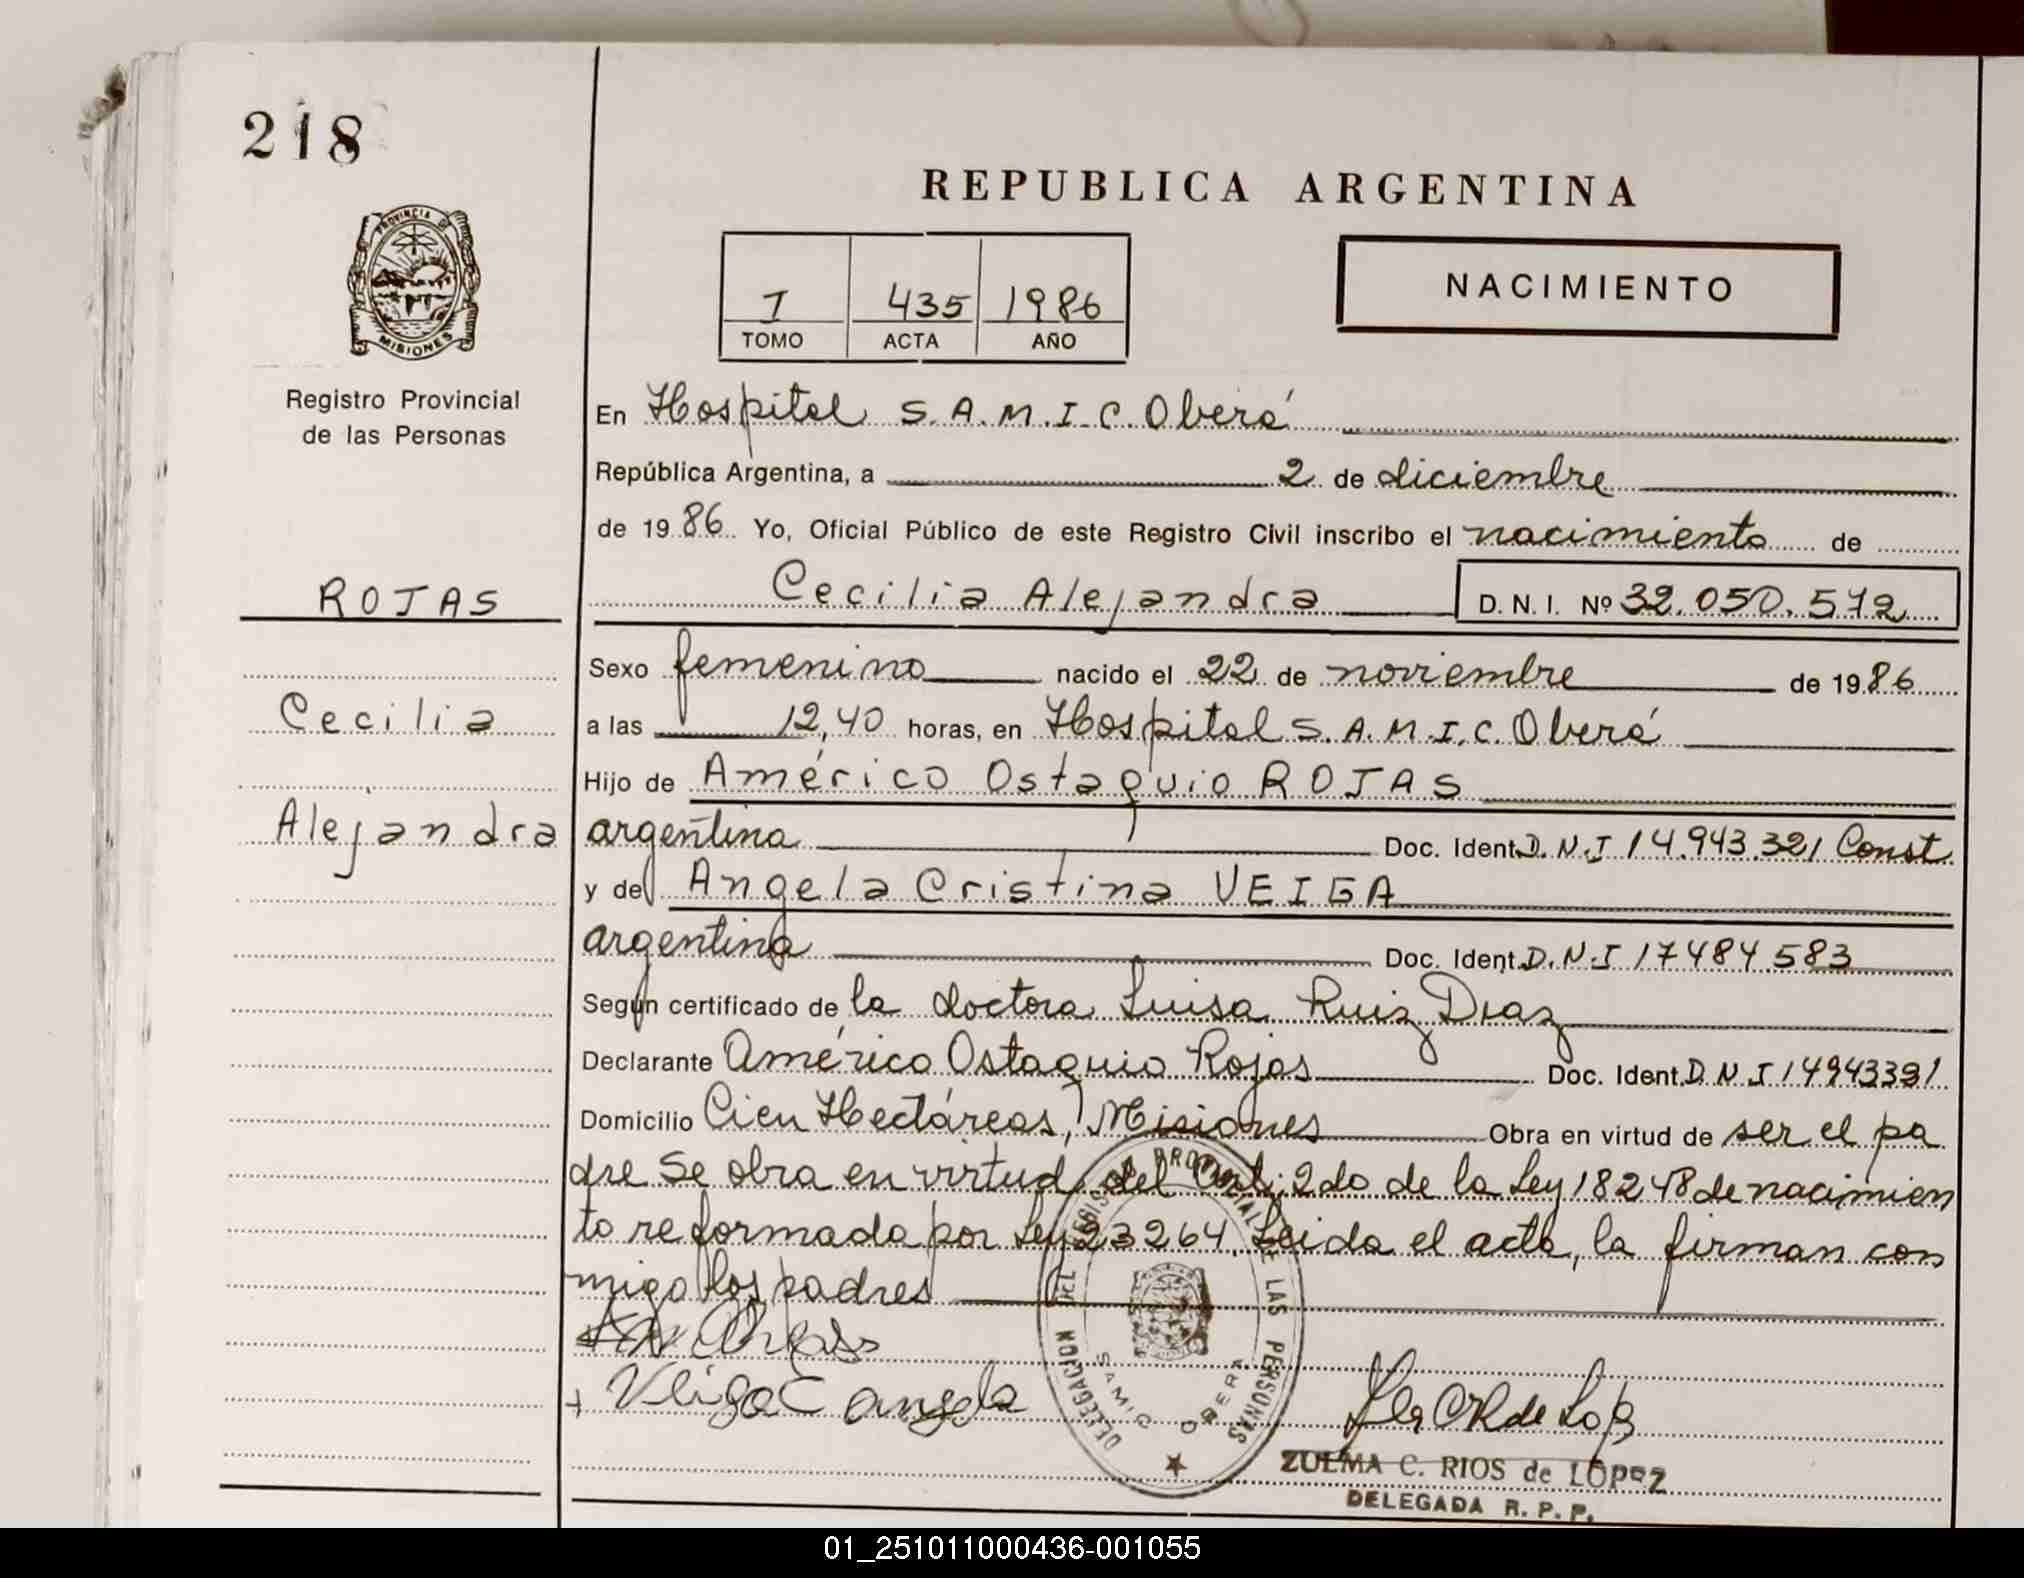 218
REPUBLICA ARGENTINA
PROVINCIA DE
MISIONES
Registro Provincial
de las Personas
I 435 1986
TOMO ACTA AÑO
NACIMIENTO
En Hospital S.A.M.I.C. Oberá
República Argentina, a 2 de diciembre
de 1986 Yo, Oficial Público de este Registro Civil inscribo el nacimiento de
ROJAS
Cecilia Alejandra D. N. I. Nº 32.050.572
Sexo femenino nacido el 22 de noviembre de 1986
Cecilia
a las 12,40 horas, en Hospital S.A.M.I.C. Oberá
Hijo de Américo Ostaquio ROJAS
Alejandra
argentina Doc. Ident. D.N.I 14.943.321 Const
y de Angela Cristina VEIGA
argentina Doc. Ident. D.N.I 17484.583
Según certificado de la doctora Luisa Ruiz Diaz
Declarante Américo Ostaquio Rojas Doc. Ident. D N I 14943391
Domicilio Cien Hectáreas, Misiones Obra en virtud de ser el pa
dre Se obra en virtud del Art. 2do de la Ley 18248 de nacimien
to reformada por Ley 23264. Leida el acta, la firman con
migo los padres
Veiga C angela
DELEGACION DEL REGISTRO PROVINCIAL DE LAS PERSONAS
SAMIC OBERA
ZULMA C. RIOS de LOPEZ
DELEGADA R. P. P.
01_251011000436-001055